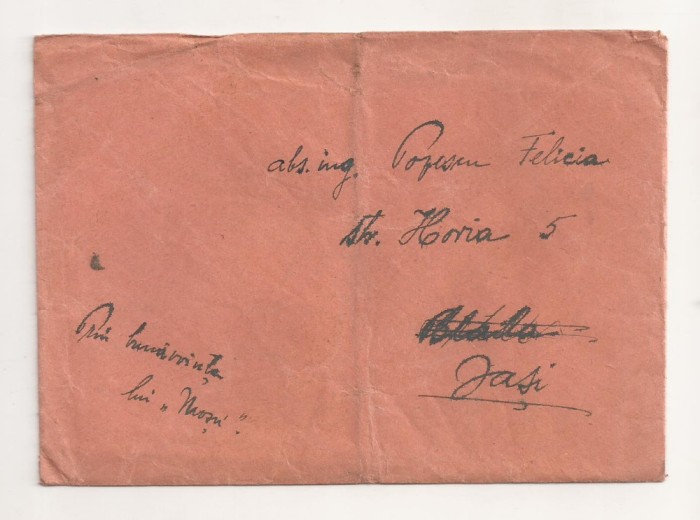 abs. ing. Popescu Felicia
str. Horia 5
Iași
Prin bunăvoința
lui „Moșu".